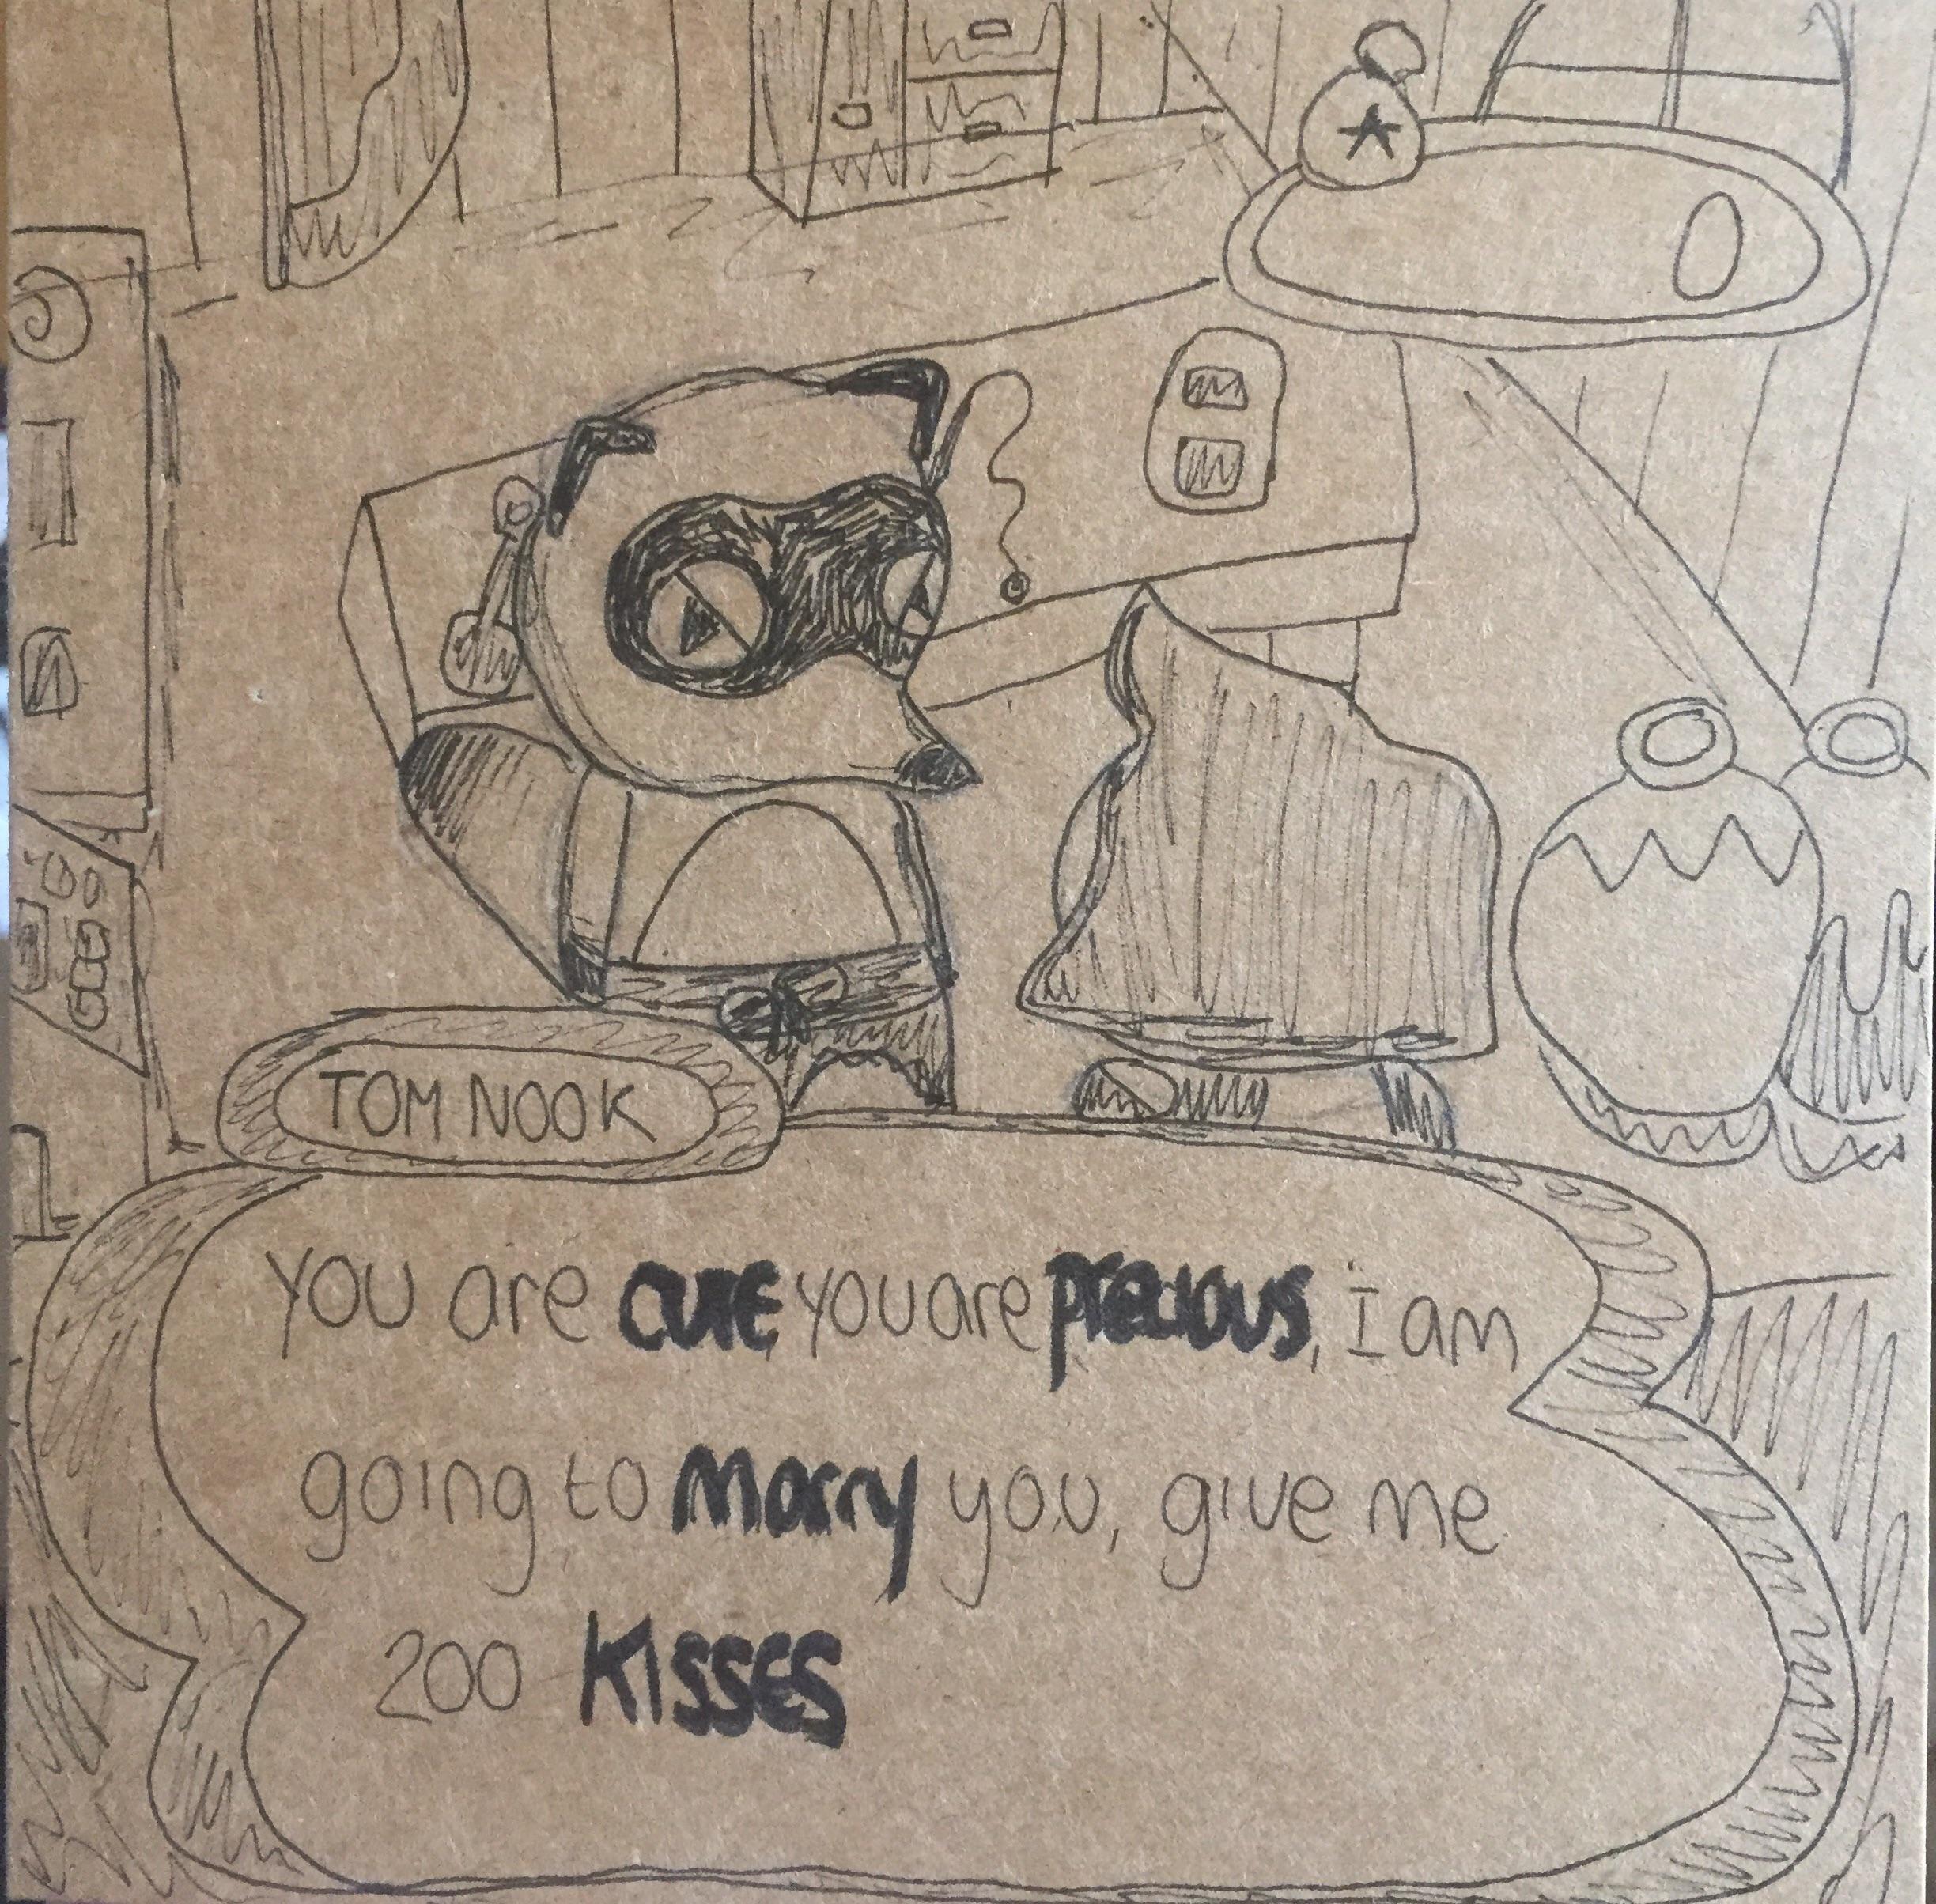 0
TOM NOOK
You are cute, you are precious, i am
going to Marry you, give me
200 KISSES